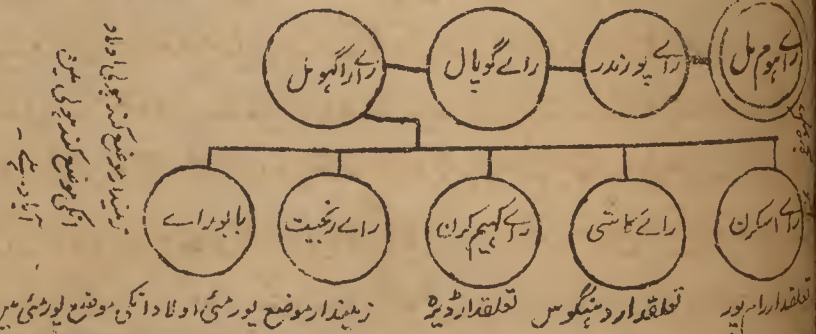 رائے ہوم مل
رائے پورندر
رائے گوپال
رائے راگھو مل
رائے اسکرن
رائے کاشی
رائے کھیم کرن
رائے رنجیت
بابو رائے
تعلقدار رامپور
تعلقدار دہنگوس
تعلقدار ڈیرہ
زمیندار موضع پورمئی اولاد انکی موضع پورمئی میں
زمیندار موضع گندجولی اولاد
انکی موضع گندجولی میں
آباد ہے -